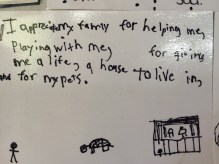 I appreciate my family for helping me,
playing with me, for giving
me a life, a house to live in,
for my pets.